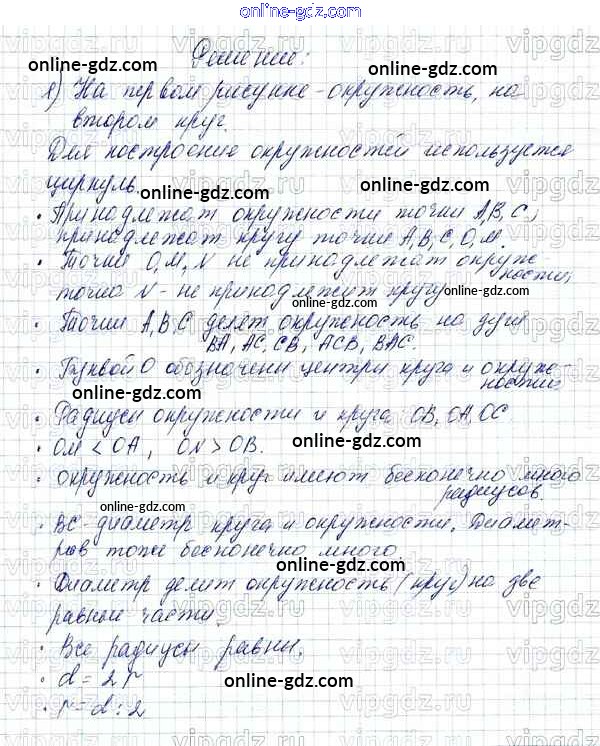 online-gdz.com
Решение:
online-gdz.com
1) На первом рисунке - окружность, на
втором круг.
online-gdz.com
Для построение окружностей используется
циркуль.
online-gdz.com
• Принадлежат окружности точки A, B, C;
принадлежат кругу точки A, B, C, O, M.
• Точки O, M, N не принадлежат окруж-
ности;
точка N - не принадлежит кругу
online-gdz.com
• Точки A, B, C делят окружность на дуги
BA, AC, CB, ACB, BAC.
online-gdz.com
• Буквой O обозначены центры круга и окруж-
ности
online-gdz.com
• Радиусы окружности и круга: OB, OA, OC
• OM < OA, ON > OB.
online-gdz.com
• окружность и круг имеют бесконечно много
радиусов.
online-gdz.com
• BC - диаметр круга и окружности. Диамет-
ров тоже бесконечно много
online-gdz.com
• Диаметр делит окружность (круг) на две
равные части.
online-gdz.com
• Все радиусы равны.
• d = 2r
online-gdz.com
• r = d : 2
vipgdz.ru